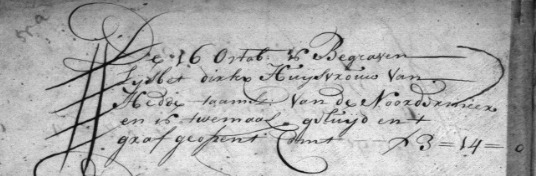 De 16 Octob: is Begraven
Lysbet dirks Huysvrouw Van
Van de Noordermeer
en is twemaal geluijd en t
graf geopent Comt ƒ 3=14=0